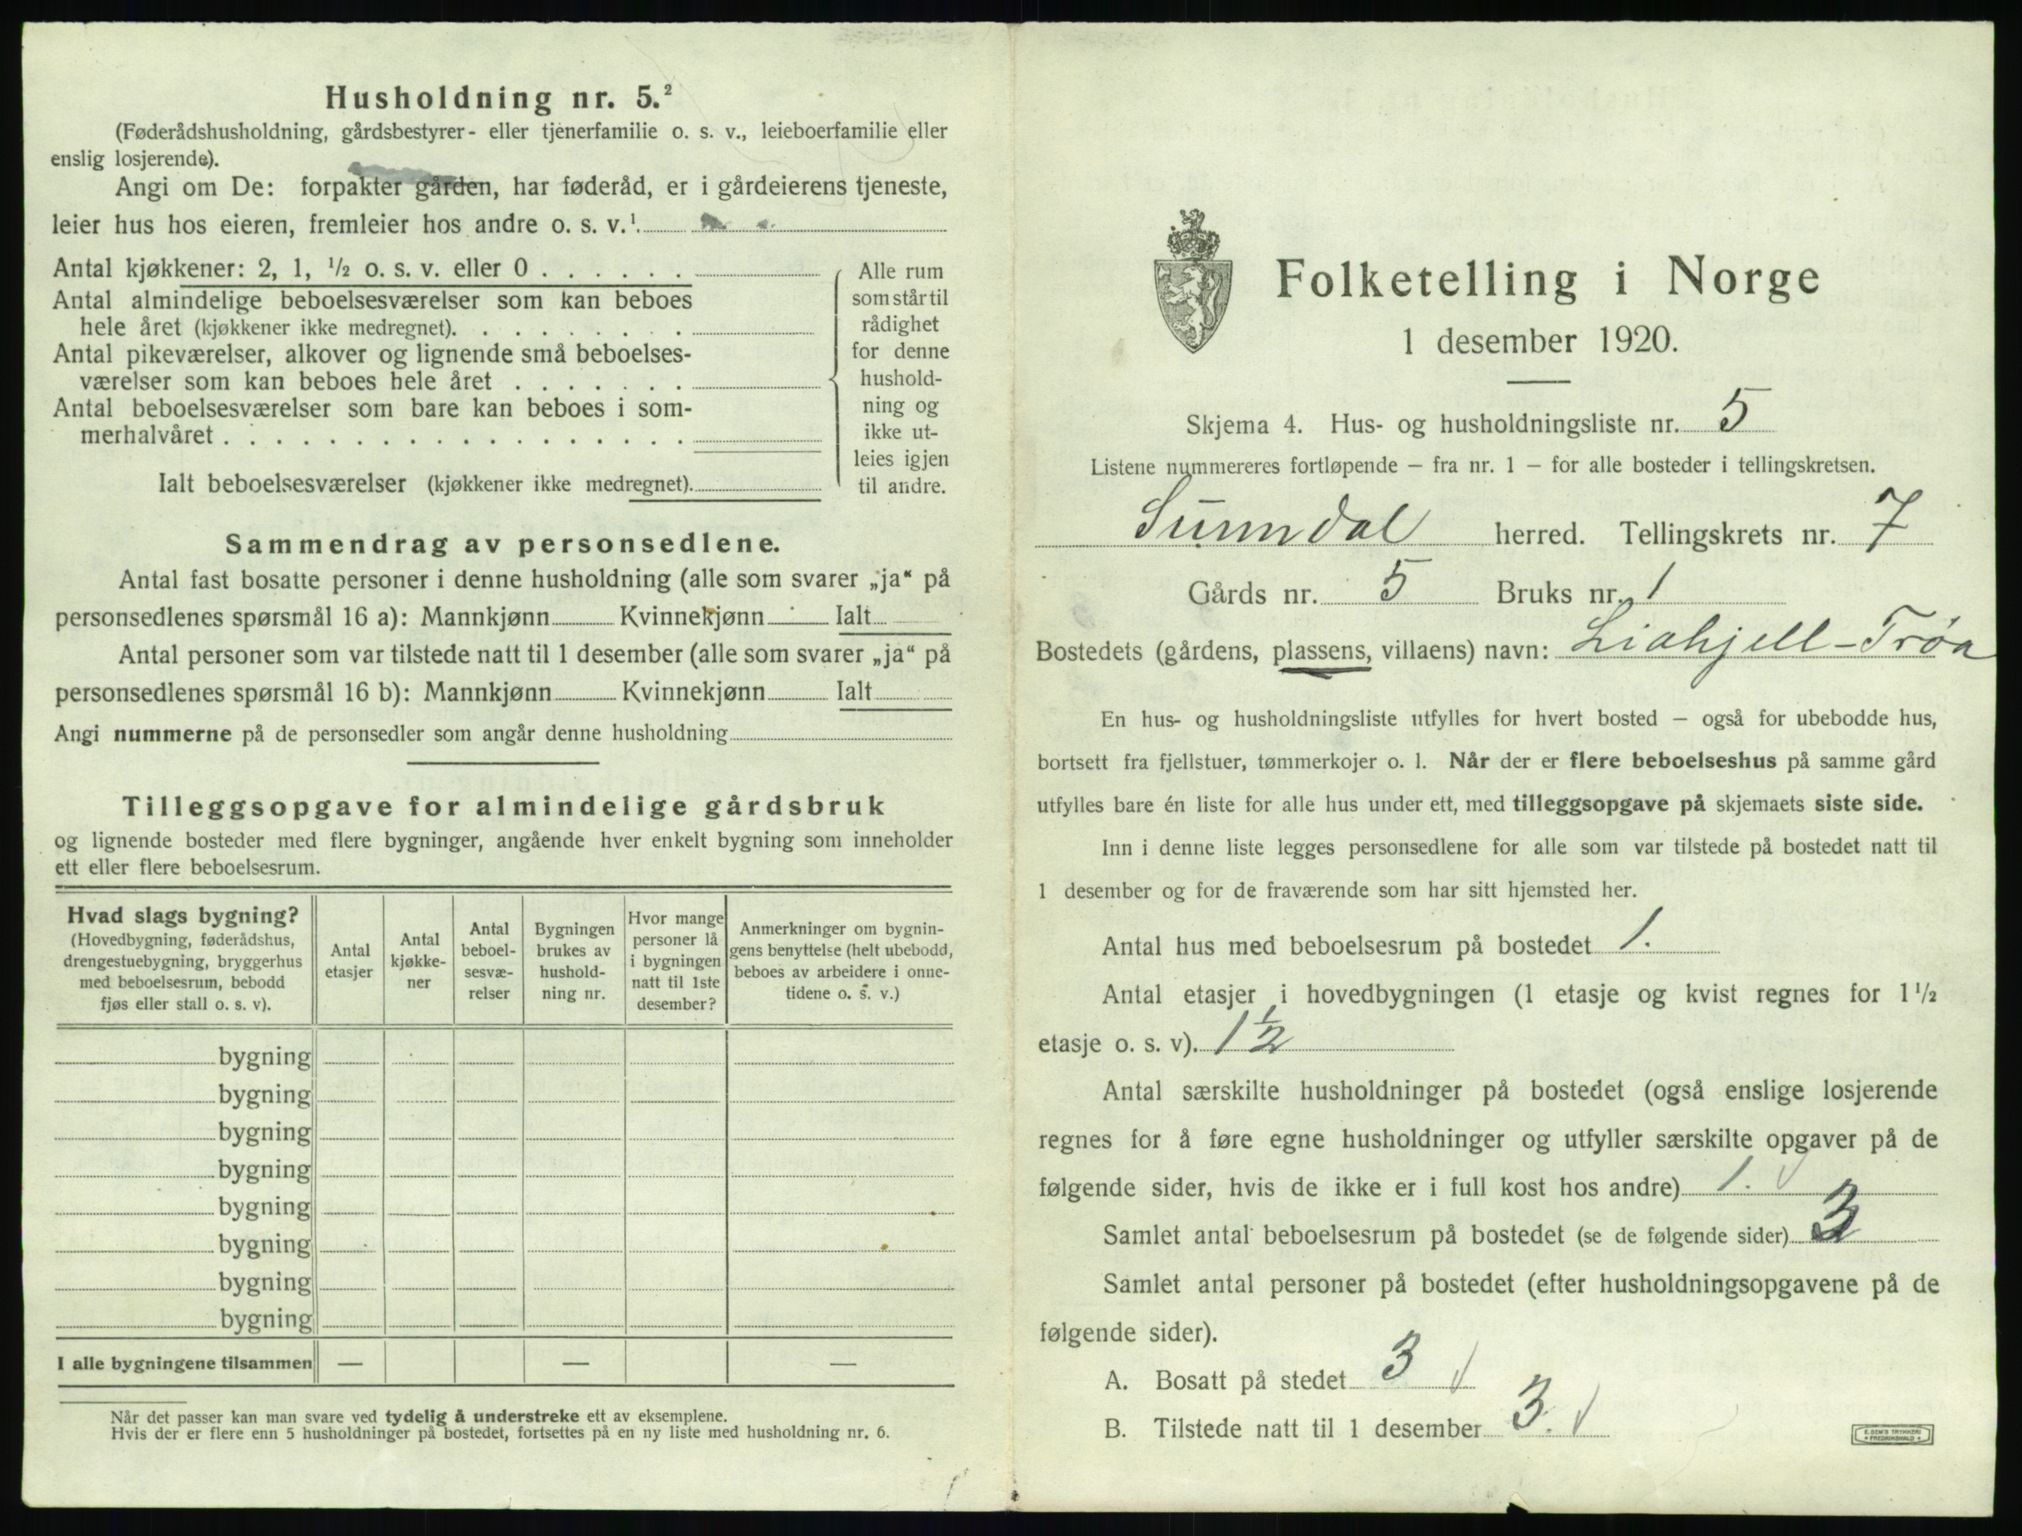 Husholdning nr. 5.²
(Føderådshusholdning, gårdsbestyrer- eller tjenerfamilie o. s. v., leieboerfamilie eller
enslig losjerende).
Angi om De: forpakter gården, har føderåd, er i gårdeierens tjeneste,
leier hus hos eieren, fremleier hos andre o. s. v.¹
Antal kjøkkener: 2, 1, ½ o. s. v. eller 0 . . . . . .
Antal almindelige beboelsesværelser som kan beboes
hele året (kjøkkener ikke medregnet). . . . . . . . .
Antal pikeværelser, alkover og lignende små beboelses-
værelser som kan beboes hele året . . . . . . .
Antal beboelsesværelser som bare kan beboes i som-
merhalvåret . . . . . . . . . . . . . . . . . .
Ialt beboelsesværelser (kjøkkener ikke medregnet).
Alle rum
som står til
rådighet
for denne
hushold-
ning og
ikke ut-
leies igjen
til andre.
Sammendrag av personsedlene.
Antal fast bosatte personer i denne husholdning (alle som svarer „ja“ på
personsedlenes spørsmål 16 a): Mannkjønn Kvinnekjønn Ialt
Antal personer som var tilstede natt til 1 desember (alle som svarer „ja“ på
personsedlenes spørsmål 16 b): Mannkjønn Kvinnekjønn Ialt
Angi nummerne på de personsedler som angår denne husholdning
Tilleggsopgave for almindelige gårdsbruk
og lignende bosteder med flere bygninger, angående hver enkelt bygning som inneholder
ett eller flere beboelsesrum.
Hvad slags bygning?
(Hovedbygning, føderådshus,
drengestuebygning, bryggerhus
med beboelsesrum, bebodd
fjøs eller stall o. s. v).
Antal
etasjer
Antal
kjøkke-
ner
Antal
beboel-
sesvæ-
relser
Bygningen
brukes av
hushold-
ning nr.
Hvor mange
personer lå
i bygningen
natt til 1ste
desember?
Anmerkninger om bygnin-
gens benyttelse (helt ubebodd,
beboes av arbeidere i onne-
tidene o. s. v.)
bygning
bygning
bygning
bygning
bygning
bygning
bygning
bygning
I alle bygningene tilsammen — — —
Når det passer kan man svare ved tydelig å understreke ett av eksemplene.
Hvis der er flere enn 5 husholdninger på bostedet, fortsettes på en ny liste med husholdning nr. 6.
Folketelling i Norge
1 desember 1920.
Skjema 4. Hus- og husholdningsliste nr. 5
Listene nummereres fortløpende – fra nr. 1 – for alle bosteder i tellingskretsen.
Sunndal herred. Tellingskrets nr. 7
Gårds nr. 5 Bruks nr. 1
Bostedets (gårdens, plassens, villaens) navn: Liahjell-Trøa
En hus- og husholdningsliste utfylles for hvert bosted – også for ubebodde hus,
bortsett fra fjellstuer, tømmerkojer o. l. Når der er flere beboelseshus på samme gård
utfylles bare én liste for alle hus under ett, med tilleggsopgave på skjemaets siste side.
Inn i denne liste legges personsedlene for alle som var tilstede på bostedet natt til
1 desember og for de fraværende som har sitt hjemsted her.
Antal hus med beboelsesrum på bostedet 1.
Antal etasjer i hovedbygningen (1 etasje og kvist regnes for 1½
etasje o. s. v). 1½
Antal særskilte husholdninger på bostedet (også enslige losjerende
regnes for å føre egne husholdninger og utfyller særskilte opgaver på de
følgende sider, hvis de ikke er i full kost hos andre) 1. √
Samlet antal beboelsesrum på bostedet (se de følgende sider) 3
Samlet antal personer på bostedet (efter husholdningsopgavene på de
følgende sider).
A. Bosatt på stedet 3 √
B. Tilstede natt til 1 desember 3. √
E. SEM'S TRYKKERI
FREDRIKSHALD